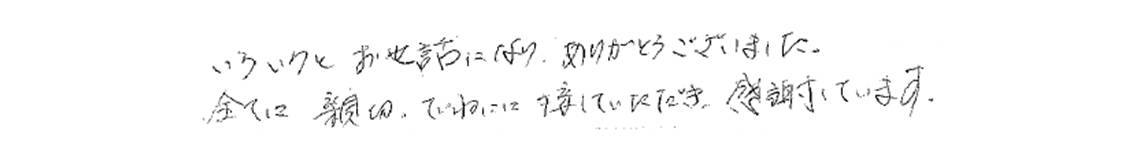 いろいろと お世話になり、ありがとうございました。
全てに 親切、ていねいに 接していただき、感謝しています。